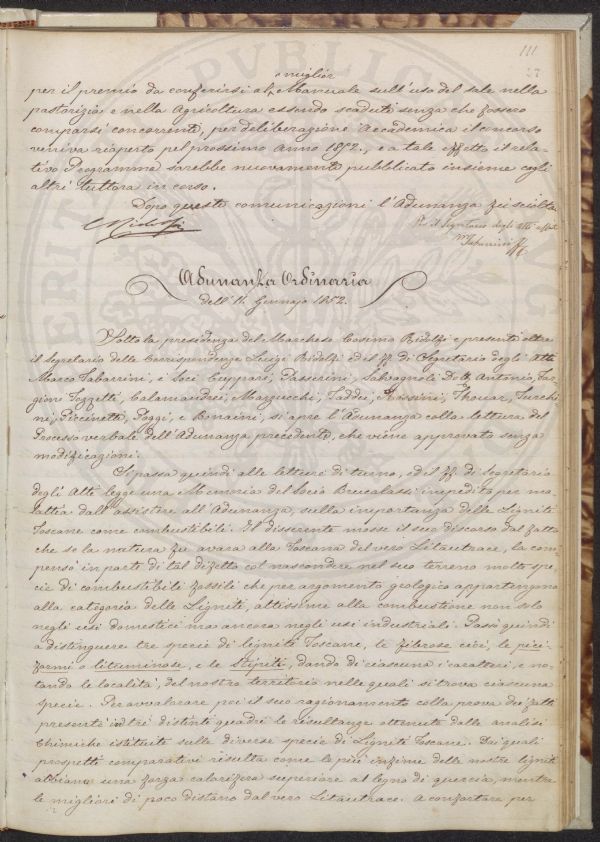 111
27
miglior
per il premio da conferirsi al Manuale sull'uso del sale nella
pastorizia e nella Agricoltura essendo scaduti senza che fossero
comparsi concorrenti, per deliberazione Accademica il concorso
veniva riaperto pel prossimo anno 1852, e a tale effetto il rela-
tivo Programma sarebbe nuovamente pubblicato insieme cogli
altri tuttora in corso.
Dopo queste comunicazioni l'Adunanza fu sciolta
CRidolfi
Per il Segretario degli Atti
MTabarrini ff
Adunanza Ordinaria
dell' Gennajo 1852.
Sotto la presidenza del Marchese Cosimo Ridolfi e presenti oltre
il Segretario delle Corrispondenze Luigi Ridolfi ed il ff. di Segretario degli Atti
Marco Tabarrini, e Soci Cuppari, Passerini, Salvagnoli Dott. Antonio, Tar-
gioni Tozzetti, Calamandrei, Mazzucchi, Taddei, Thouar, Turchi-
ni, Piccinetti, Poggi, e Bonaini, si apre l'Adunanza colla lettura del
Processo verbale dell'Adunanza precedente, che viene approvato senza
modificazioni.
Si passa quindi alle letture di turno, ed il ff. di Segretario
degli Atti legge una Memoria del Socio Brucalassi impedito per ma-
lattia dall'assistere all'Adunanza, sulla importanza delle Ligniti
Toscane come combustibili. Il disserente mosse il suo discorso dal fatto
che se la natura fu avara alla Toscana del vero Litantrace, la com-
pensò in parte di tal difetto col nascondere nel suo terreno molte spe-
cie di combustibili fossili che per argomento geologico appartengono
alla categoria delle Ligniti, attissime alla combustione non solo
negli usi domestici ma ancora negli usi industriali. Passò quindi
a distinguere tre specie di ligniti Toscane, le fibrose cioè, le pici-
formi o bituminose, e le Stipiti, dando di ciascuna i caratteri, e no-
tando le località, del nostro territorio nelle quali si trova ciascuna
specie. Per avvalorare poi il suo ragionamento colla prova dei fatti
presentò in tre distinti quadri le resultanze ottenute dalle analisi
Chimiche istituite sulle diverse specie di Ligniti Toscane. Dai quali
prospetti comparativi risulta come le più infime delle nostre ligniti
abbiano una forza calorifera superiore al legno di quercia, mentre
le migliori di poco distano dal vero Litantrace. A confortare per